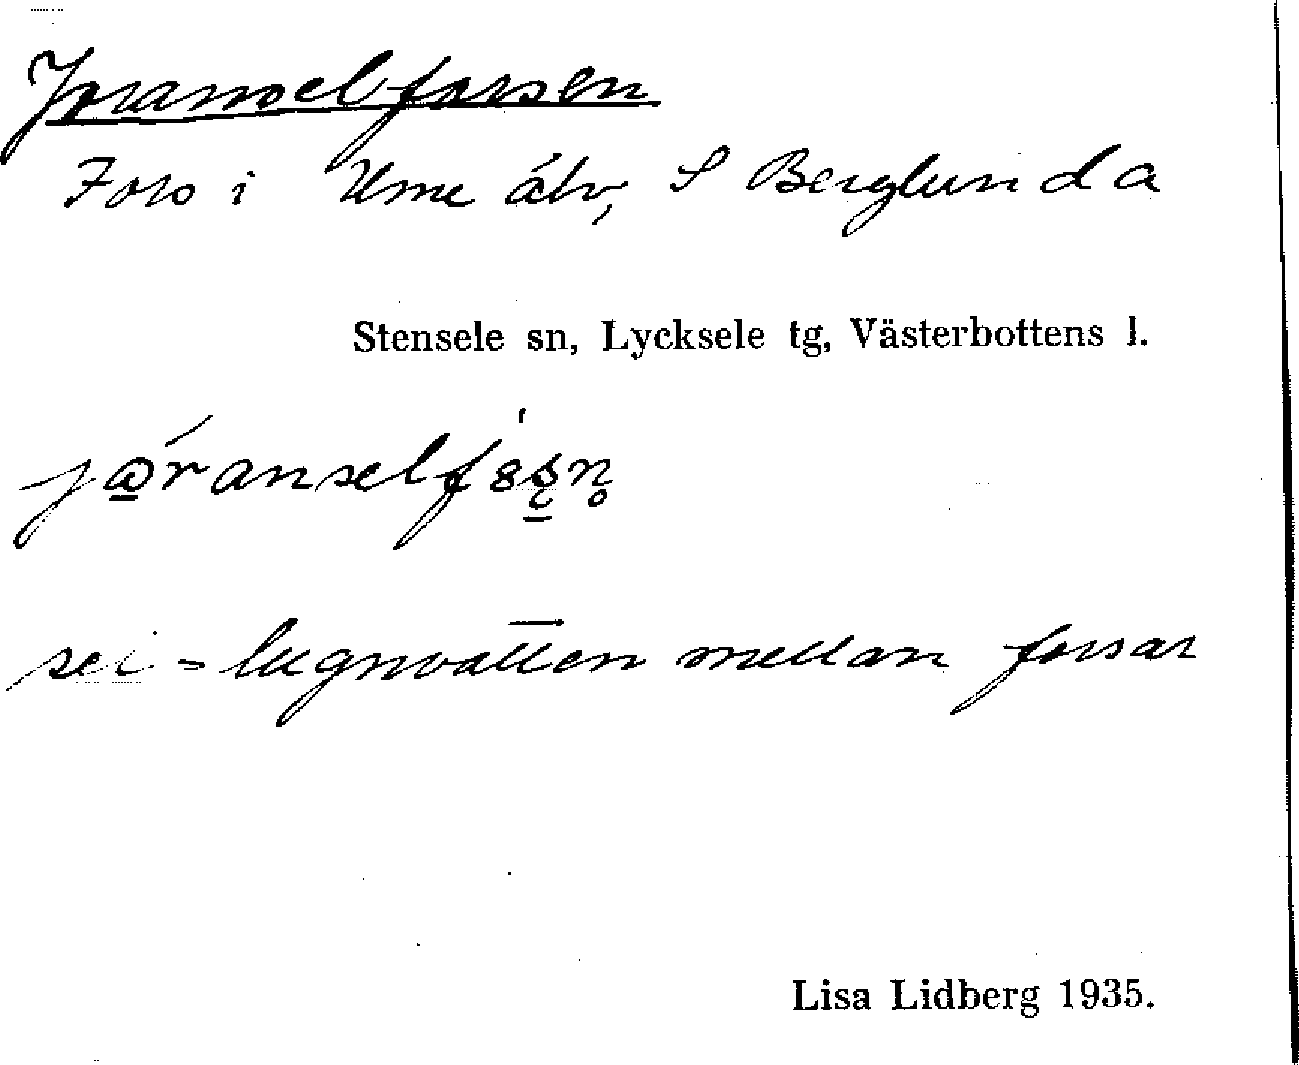 Joranselforsen
Fors i Ume älv, S Berglunda
Stensele sn, Lycksele tg, Västerbottens l.
sel = lugnvatten mellan forsar
Lisa Lidberg 1935.